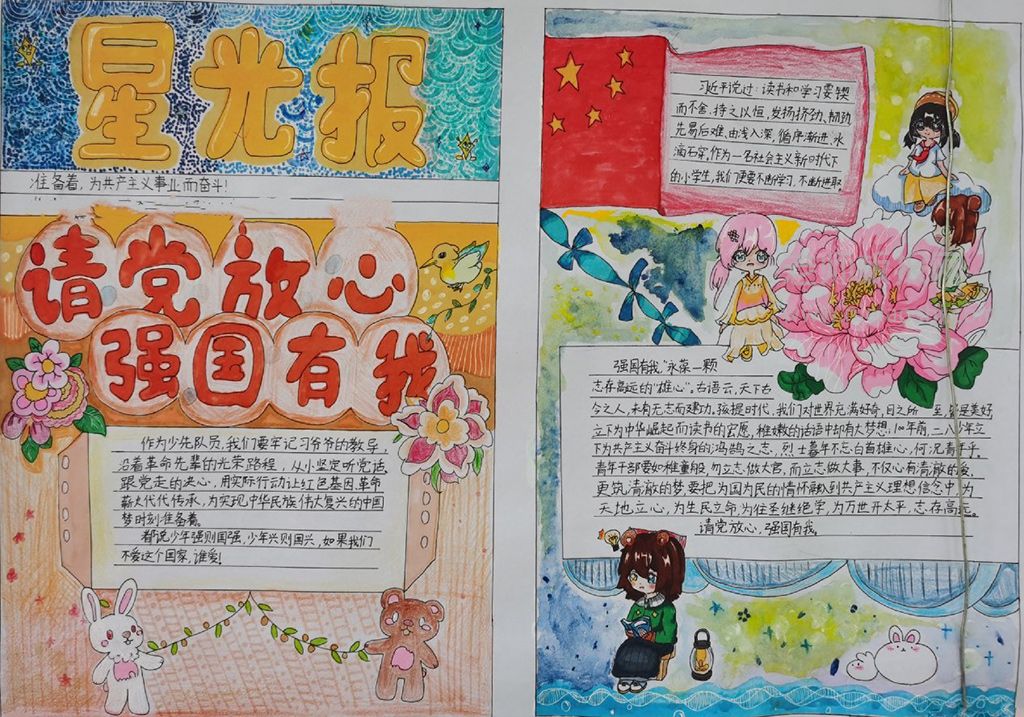 星光报
准备着,为共产主义事业而奋斗!
请党放心
强国有我
作为少先队员,我们要牢记习爷爷的教导,
沿着革命先辈的光荣路程,从小坚定听党话
跟党走的决心,用实际行动让红色基因、革命
薪火代代传承,为实现中华民族伟大复兴的中国
梦时刻准备着。
都说少年强则国强,少年兴则国兴,如果我们
不爱这个国家,谁爱!
习近平说过:读书和学习要锲
而不舍、持之以恒,发扬挤劲、韧劲
先易后难、由浅入深,循序渐进、水
滴石穿,作为一名社会主义新时代下
的小学生,我们更要不断学习,不断进取。
强国有我"永葆一颗
志存高远的"雄心",古语云,天下古
今之人,未有无志而建功,孩提时代,我们对世界充满好奇,目之所 至皆是美好,
立下为中华崛起而读书的宏愿,稚嫩的话语中却有大梦想,100年前,二八少年立
下为共产主义奋斗终身的鸿鹄之志,烈士暮年不忘白首雄心,何况青年乎,
青年干部要如稚童般,勿立志做大官,而立志做大事,不仅心有清澈的爱,
更筑清澈的梦,要把为国为民的情怀融入到共产主义理想信念中,为
天地立心,为生民立命,为往圣继绝学,为万世开太平,志存高远。
请党放心,强国有我。